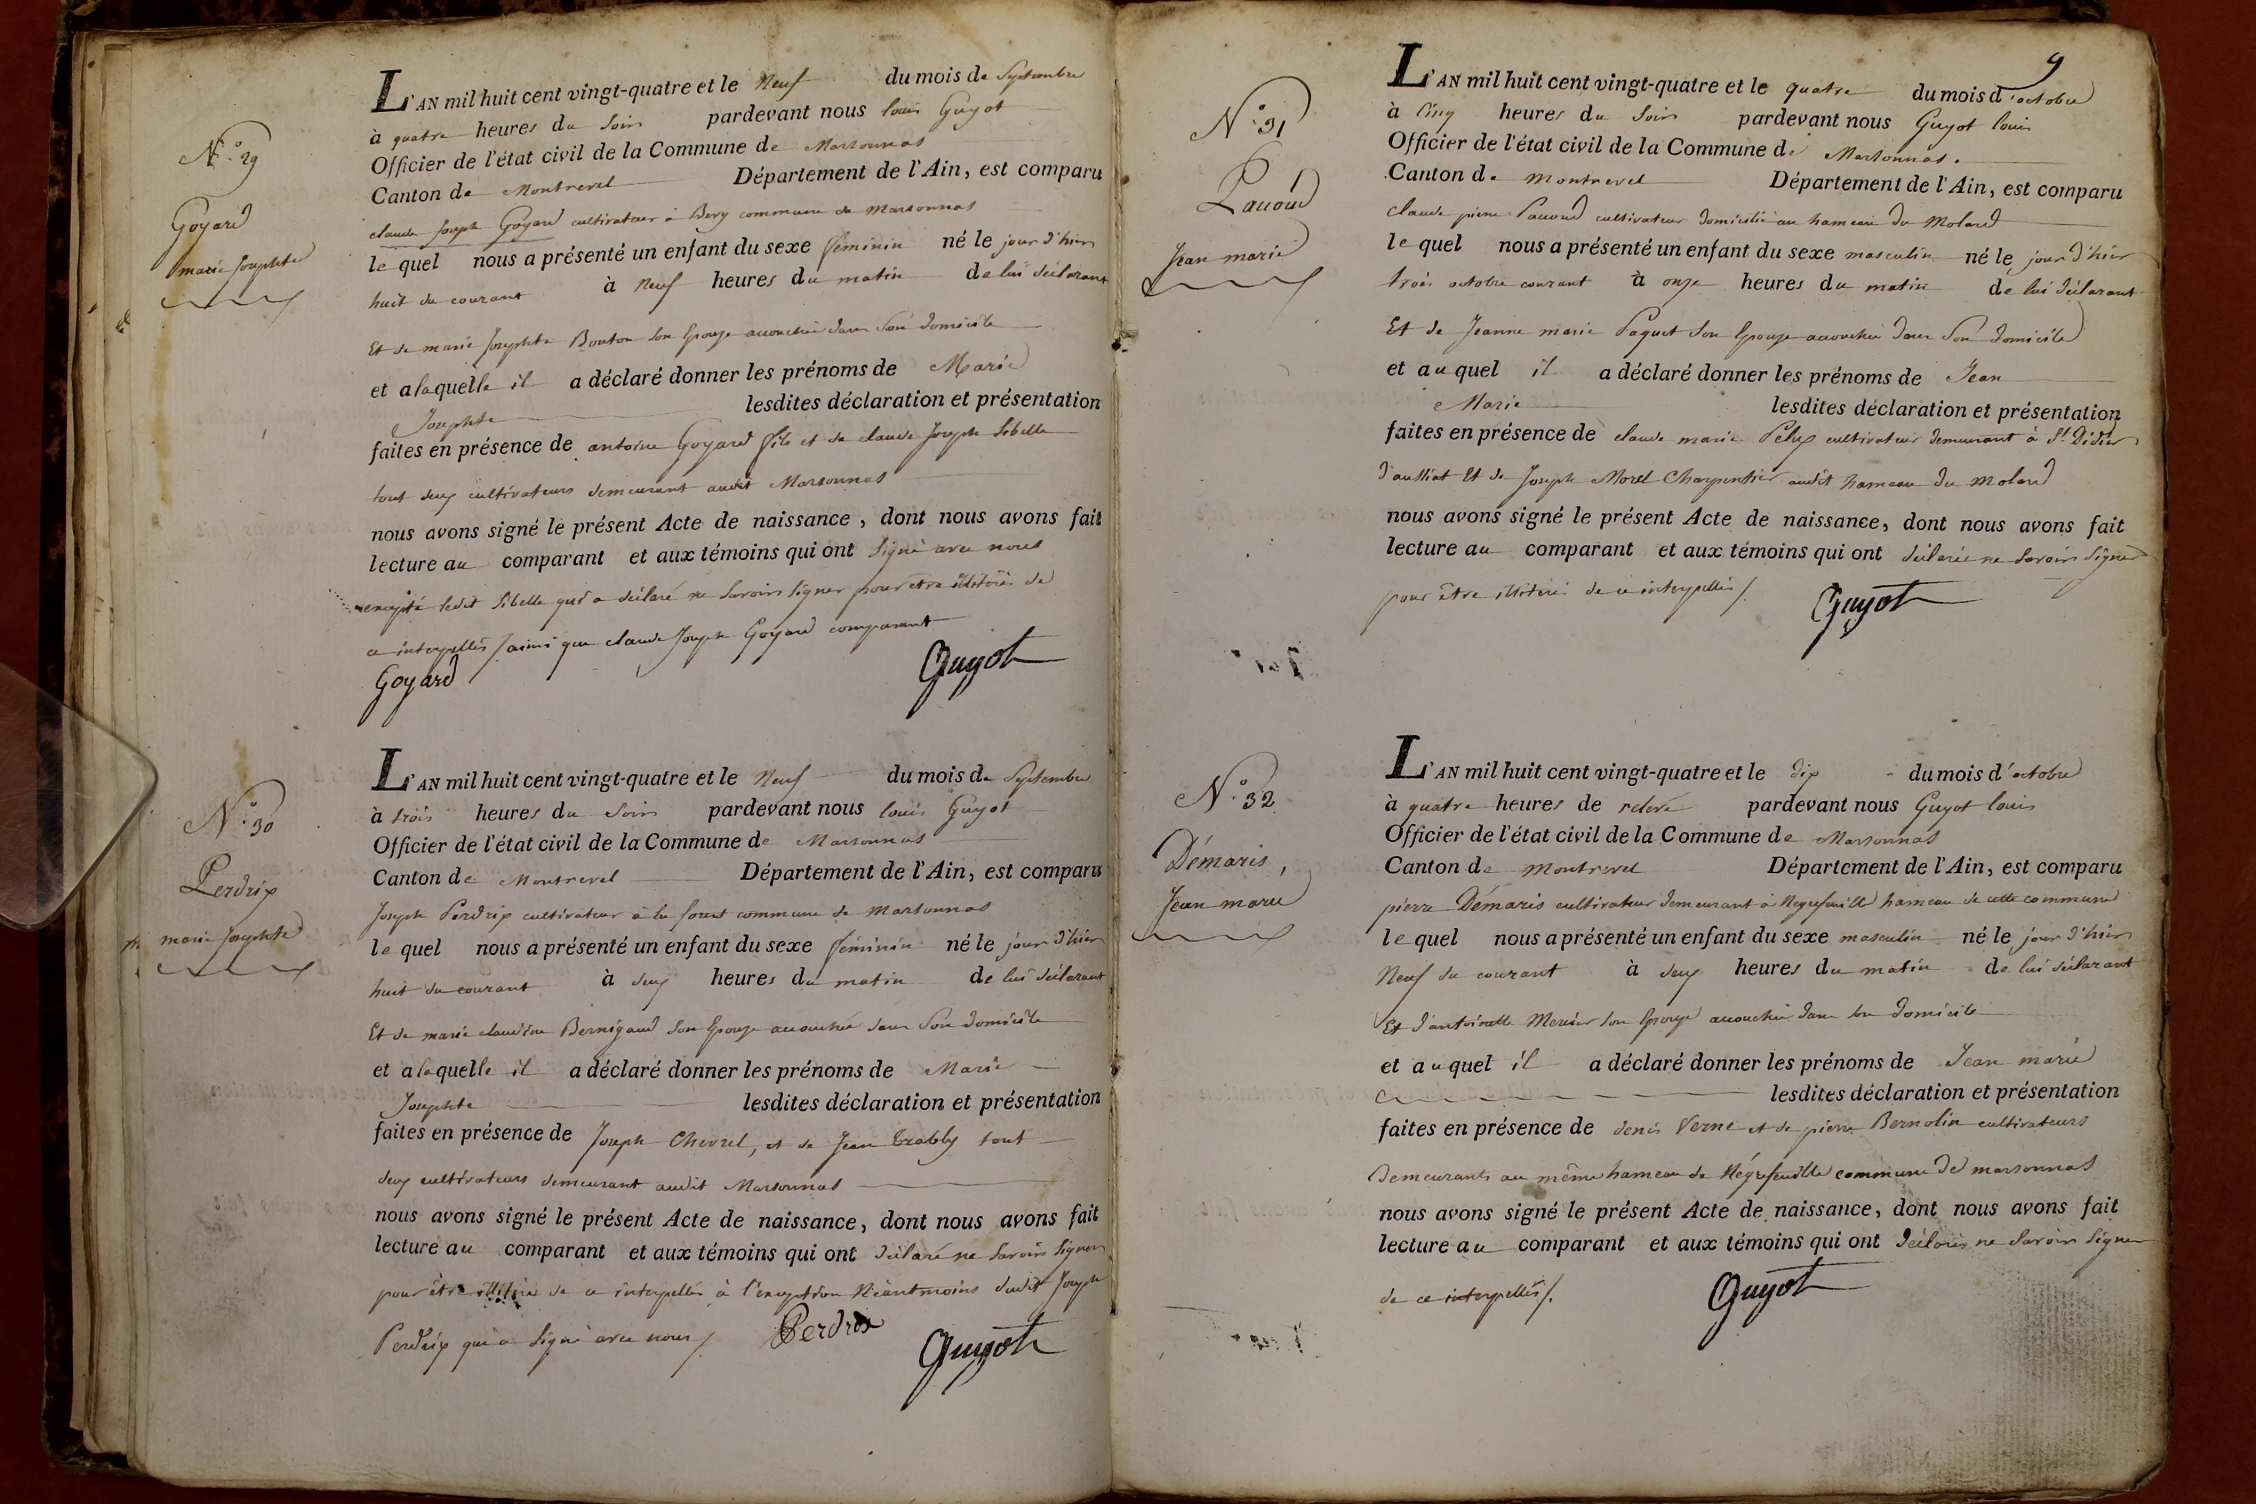 N.° 29
Goyard
marie Josephte
L'AN mil huit cent vingt-quatre et le Neuf du mois de Septembre
à quatre heures du Soir pardevant nous louis Guyot
Officier de l'état civil de la Commune de Marsonnas
Canton de Montrevel Département de l'Ain, est comparu
claude Joseph Goyard cultivateur à Bevy commune de Marsonnas
le quel nous a présenté un enfant du sexe féminin né le jour d'hier
huit du courant à Neuf heures du matin de lui déclarant
Et de marie Josephte Bouton son Epouse accouchée dans Son domicile
et a laquelle il a déclaré donner les prénoms de Marie
Josephte lesdites déclaration et présentation
faites en présence de antoine Goyard fils et de claude Joseph Sibelle
tout deux cultivateurs demeurant audit Marsonnas
nous avons signé le présent Acte de naissance, dont nous avons fait
lecture au comparant et aux témoins qui ont Signé avec nous
excepté ledit Sibelle qui a déclaré ne Savoir Signer pour être illitéré de
ce interpellés / ainsi que claude Joseph Goyard comparant
Goyard Guyot
N.° 30
Perdrix
marie Josephte
L'AN mil huit cent vingt-quatre et le Neuf du mois de Septembre
à trois heures du Soir pardevant nous louis Guyot
Officier de l'état civil de la Commune de Marsonnas
Canton de Montrevel Département de l'Ain, est comparu
Joseph Perdrix cultivateur à la forest commune de Marsonnas
le quel nous a présenté un enfant du sexe féminin né le jour d'hier
huit du courant à deux heures du matin de lui déclarant
Et de marie claudine Bernigaud Son Epouse accouchée dans Son domicile
et a laquelle il a déclaré donner les prénoms de Marie
Josephte lesdites déclaration et présentation
faites en présence de Joseph Chevrel, et de Jean Trably tout
deux cultivateurs demeurant audit Marsonnas
nous avons signé le présent Acte de naissance, dont nous avons fait
lecture au comparant et aux témoins qui ont déclaré ne Savoir Signer
pour être illitéré de ce interpellés à l'exception Néantmoins dudit Joseph
Perdrix qui a Signé avec nous /. Perdrix
Guyot
9
N.° 31
Pauoud
Jean marie
L'AN mil huit cent vingt-quatre et le quatre du mois d'octobre
à Cinq heures du Soir pardevant nous Guyot louis
Officier de l'état civil de la Commune de Marsonnas.
Canton de Montrevel Département de l'Ain, est comparu
claude pierre Pauoud cultivateur domicilié au hameau du Molard
le quel nous a présenté un enfant du sexe masculin né le jour d'hier
trois octobre courant à onze heures du matin de lui déclarant
Et de Jeanne marie Paquet Son Epouse accouchée dans Son domicile
et au quel il a déclaré donner les prénoms de Jean
Marie lesdites déclaration et présentation
faites en présence de claude marie Pelux cultivateur demeurant à St Didier
d'aussiat Et de Joseph Morel Charpentier audit hameau du Molard
nous avons signé le présent Acte de naissance, dont nous avons fait
lecture au comparant et aux témoins qui ont déclaré ne Savoir Signer
pour être illitéré de ce interpellés /.
Guyot
N.° 32
Démaris,
Jean marie
L'AN mil huit cent vingt-quatre et le dix du mois d'octobre
à quatre heures de relevé pardevant nous Guyot louis
Officier de l'état civil de la Commune de Marsonnas
Canton de Montrevel Département de l'Ain, est comparu
pierre Démaris cultivateur demeurant à Negrefeuille hameau de cette commune
le quel nous a présenté un enfant du sexe masculin né le jour d'hier
Neuf du courant à deux heures du matin de lui déclarant
Et d'antoinette Mercier son Epouse accouchée dans son domicile
et au quel il a déclaré donner les prénoms de Jean marie
lesdites déclaration et présentation
faites en présence de denis Verne et de pierre Bernolin cultivateurs
Demeurants au même hameau de Négrefeuille commune de marsonnas
nous avons signé le présent Acte de naissance, dont nous avons fait
lecture au comparant et aux témoins qui ont déclarés ne Savoir Signer
de ce interpellés /.
Guyot